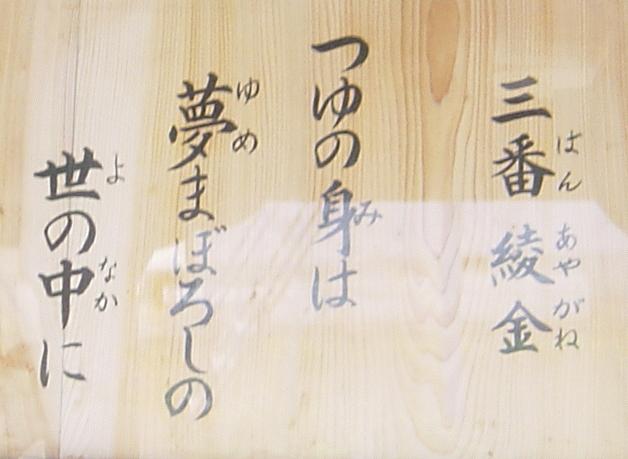 三番綾金
はん あやがね
つゆの身は
み
夢まぼろしの
ゆめ
世の中に
よ なか